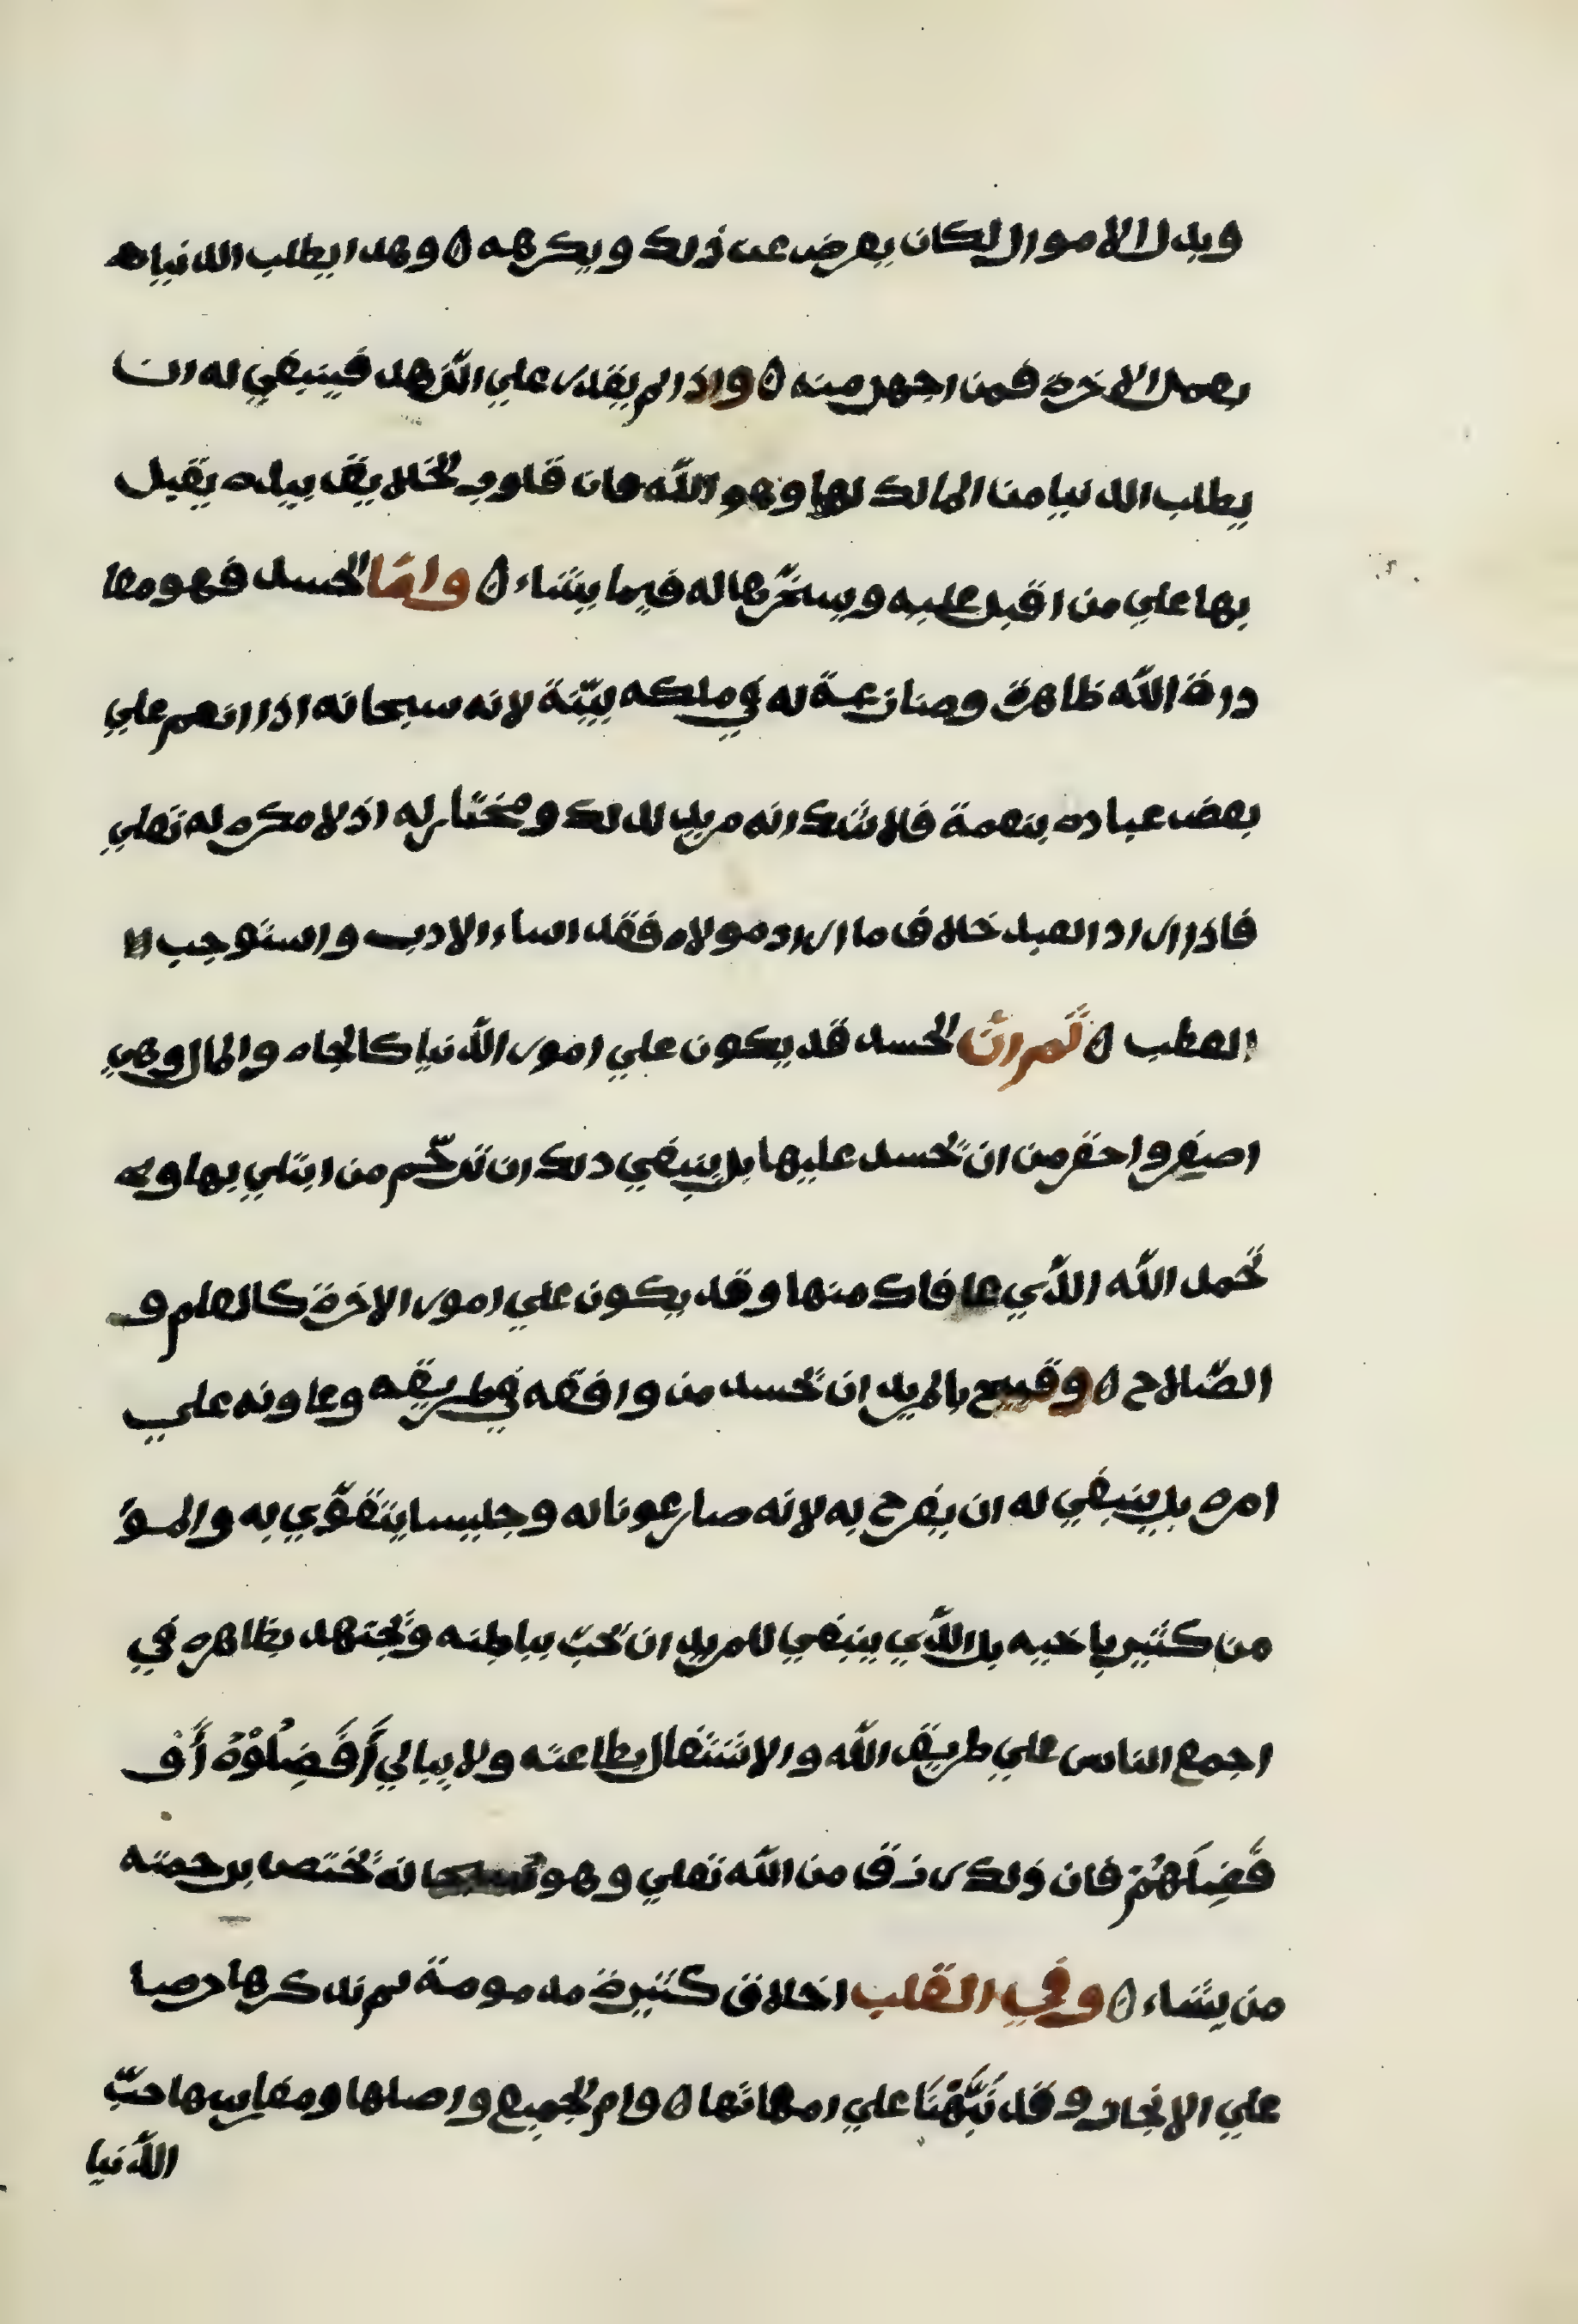 وبدل الاموال لكان يعرض عن ذلك ويكرهه ٥ وهدا يطلب الدنيا
بعمل الاخرة فمن اجهل منه ٥ واذا لم يقدر علي الزهد فينبغي له ان
يطلب الدنيا من المالك لها وهو الله فان قلوب الخلايق بيده يقبل
بها علي من اقبل عليه ويسخّرها له فيما يشاء ٥ وامّا الحسد فهو معا
درة الله ظاهرة ومنازعة له في ملكه بيّنة لانه سبحانه اذا انعم علي
بعض عباده بنعمة فلا شك انه مريد لدلك ومختار له اذ لا مكره له تعلي
فاذا اراد العبد خلاف ما اراد مولاه فقد اساء الادب واستوجب
العطب ٥ ثم ان الحسد قد يكون علي امور الدّنيا كالجاه والمال وهي
اصغر واحقر من ان تحسد عليها بل ينبغي دلك ان ترحّم من ابتلي بها و
تحمد الله الذّي عافاك منها وقد يكون علي امور الاخرة كالعلم و
الصّلاح ٥ وقبيح بالمريد ان تحسد من وافقه في طريقه وعاونه علي
امره بل ينبغي له ان يفرح به لانه صار عونا له وجليسا يتقوّي به والمؤ
من كثير باخيه بل الذّي ينبغي للمريد ان تحبّ بباطنه وتجتهد بظاهره في
اجمع الناس علي طريق الله والاشتغال بطاعته ولا يبالي أَفَضِلُوْهُ أَوْ
فَضِلَهُمْ فان ذلك رزق من الله تعلي وهو سبحانه تختص برحمته
من يشاء ٥ وفي القلب اخلاق كثيرة مدمومة لم ندكرها حرصا
علي الانجاز وقد نَبَّهْنَا علي امهاتها ٥ وام الجميع واصلها ومغارسها حبّ
الدّنيا